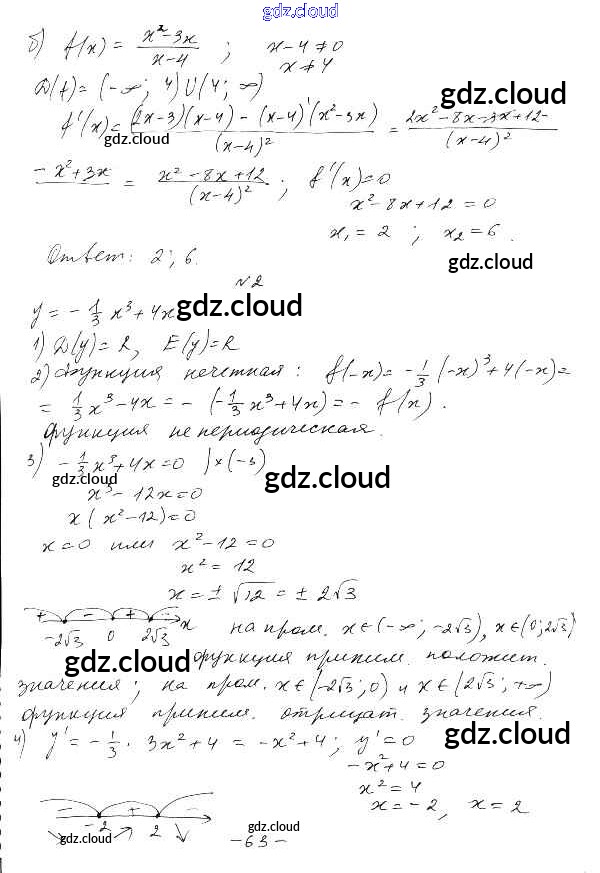 gdz.cloud
б) f(x) = (x²-3x)/(x-4) ; x-4≠0
x≠4
D(f) = (-∞; 4)U(4; ∞)
gdz.cloud
f'(x) = ((2x-3)(x-4) - (x-4)'(x²-3x))/(x-4)² = (2x²-8x-3x+12-
gdz.cloud
-x²+3x)/(x-4)² = (x²-8x+12)/(x-4)² ; f'(x)=0
x²-8x+12=0
x₁=2 ; x₂=6.
Ответ: 2; 6.
gdz.cloud
№2
y = -1/3 x³+4x
gdz.cloud
1) D(y)=R, E(y)=R
2) Функция нечетная: f(-x) = -1/3(-x)³+4(-x)=
= 1/3 x³-4x = -(-1/3 x³+4x) = -f(x).
функция непериодическая.
3) -1/3 x³+4x=0 |×(-3)
gdz.cloud
gdz.cloud
x³-12x=0
x(x²-12)=0
x=0 или x²-12=0
x²=12
x=±√12=±2√3
+ - + -
-2√3 0 2√3 x на пром. x∈(-∞; -2√3), x∈(0; 2√3)
gdz.cloud
функция приним. положит.
значения; на пром. x∈(-2√3; 0) и x∈(2√3; +∞)
функция приним. отрицат. значения.
gdz.cloud
4) y' = -1/3 · 3x²+4 = -x²+4; y'=0
-x²+4=0
x²=4
x=-2, x=2
- + -
-2 2
gdz.cloud
gdz.cloud
-63-